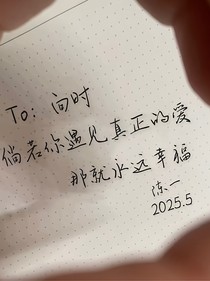 To: 向时
倘若你遇见真正的爱
那就永远幸福
陈一
2025.5